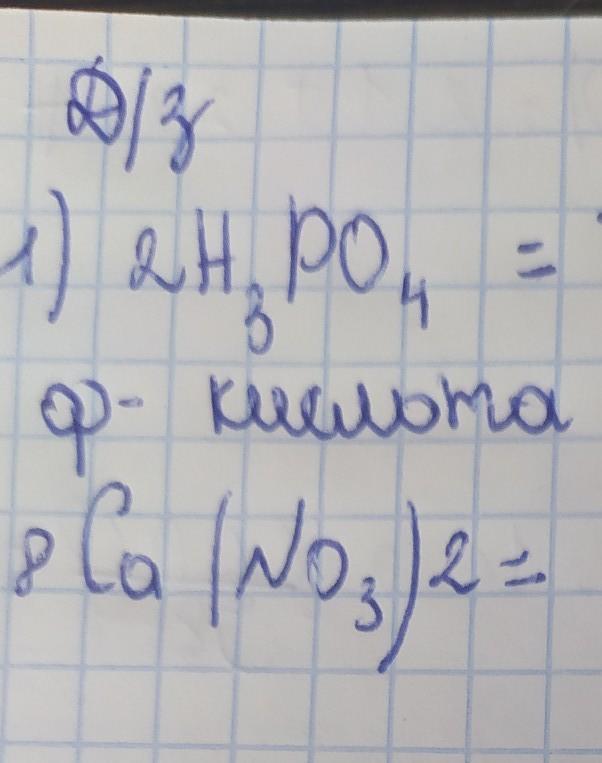 Д/з
1) 2H₃PO₄ =
ф- кислота
8Ca(NO₃)2 =